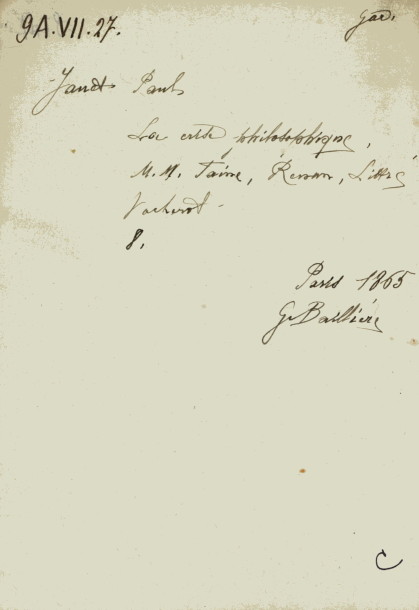 9A.VII.27.
Janet Paul
La crise philosophique,
M.M. Taine, Renan, Littré
Vacherot.
8.
Paris 1865
G. Baillière
C